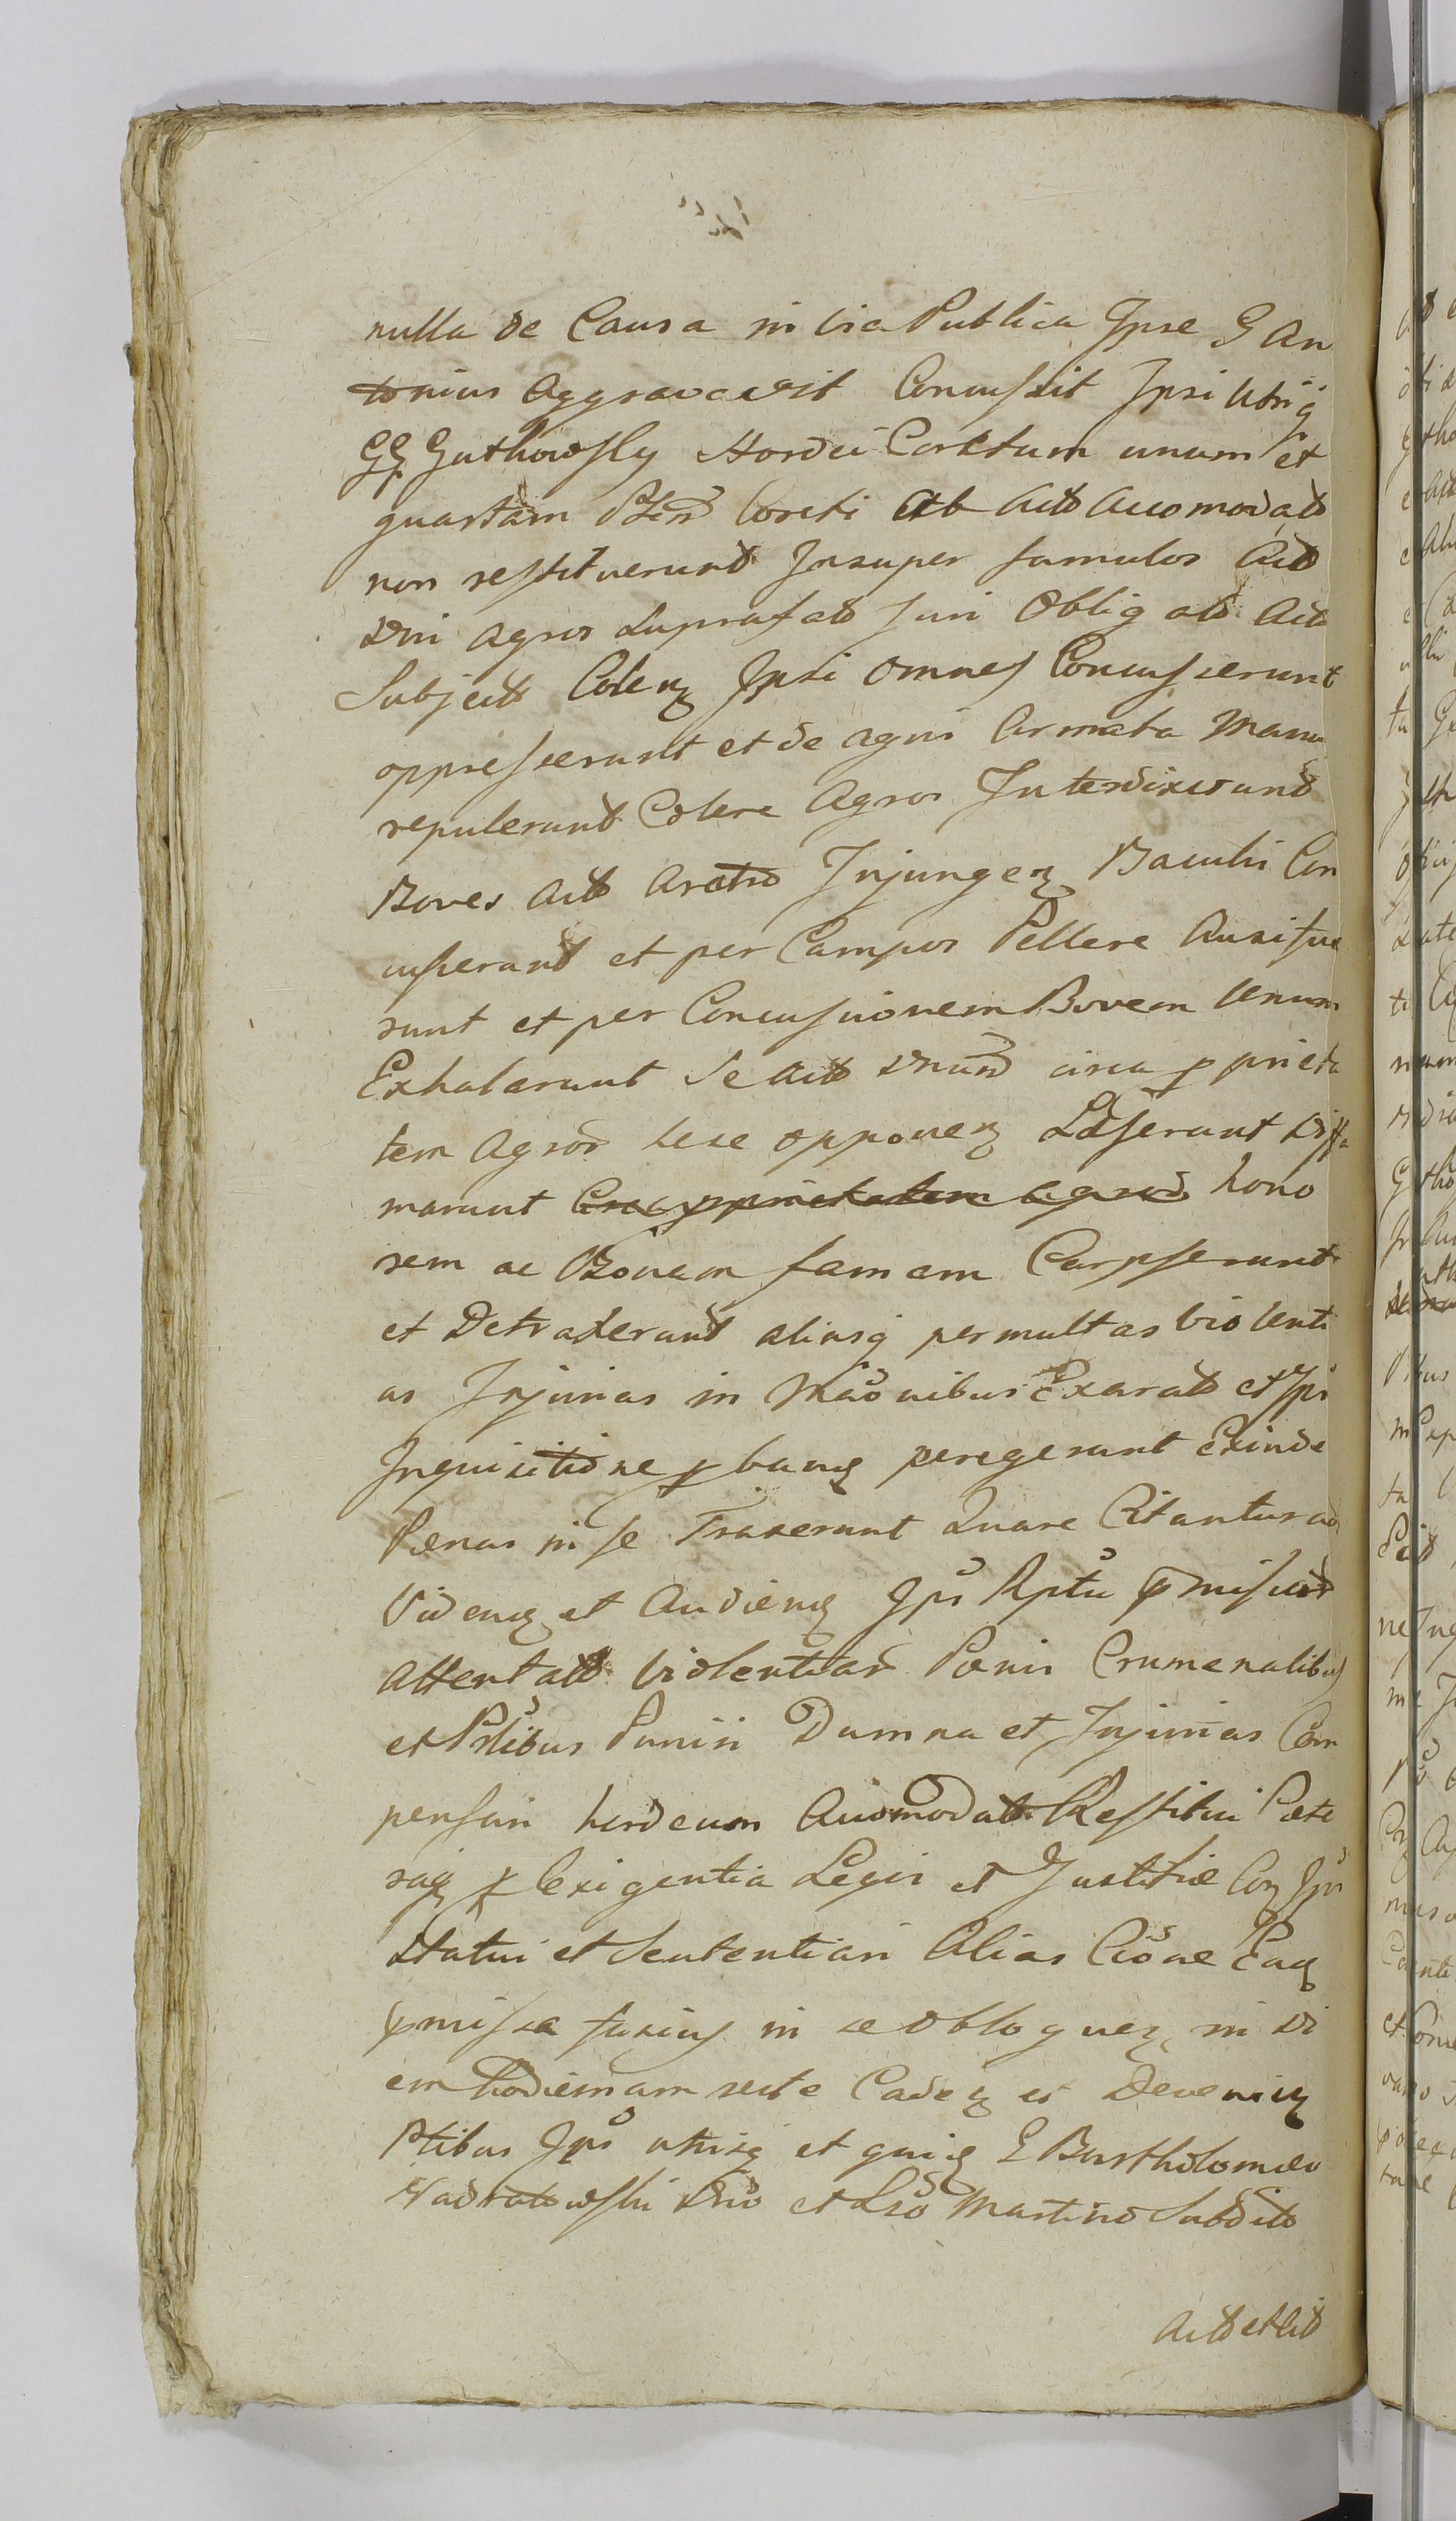 nulla de Causa in via Publica Ipse G An
tonius Aggravavit Concussit Ipsi Utriq
GG Guthowsky Hordei Coretum unum et
quartam Coreti Ab Acto Accomodato
non restituerunt Insuper famulos Acto
Dni Agros Suprafato Juri Obligato Acto
Subjecto Colen Ipsi omnes Concusserunt
oppresserunt et de agris Armata Manu
repulerunt Colere Agros Interdixerunt
Boves Acto Aratro Injungen Baculis Con
cusserunt et per Campos Pellere Ausi fue
runt et per Concussionem Bovem Unum
Exhalarunt Se Acto circa pprieta
tem Agror sese opponen Læserunt Diffa
marunt hono
rem ac Bonam famam Carpserunt
et Detraxerunt aliasq permultas violenti
as Injurias in Exarato et Ipi
Inquisitione pban peregerunt Exinde
Pænas in se Traxerunt Quare Citantur ad
Viden et Audien Ipo pmissor
Attentator Violentiar Pænis Crumenalibus
et Ptlibus Puniri Damna et Injurias Com
pensari hordeum Accomodato Restitui Cæte
raq p Exigentia Legis et Justitiæ
Statui et Sententiari Alias Cõone Eaq
pmissa fusius in se obloquen in Di
em hodiernam recte Caden et Devenien
Ptibus Ipo utrisq et G Bartholomæo
et Martino Subdito
Acto et